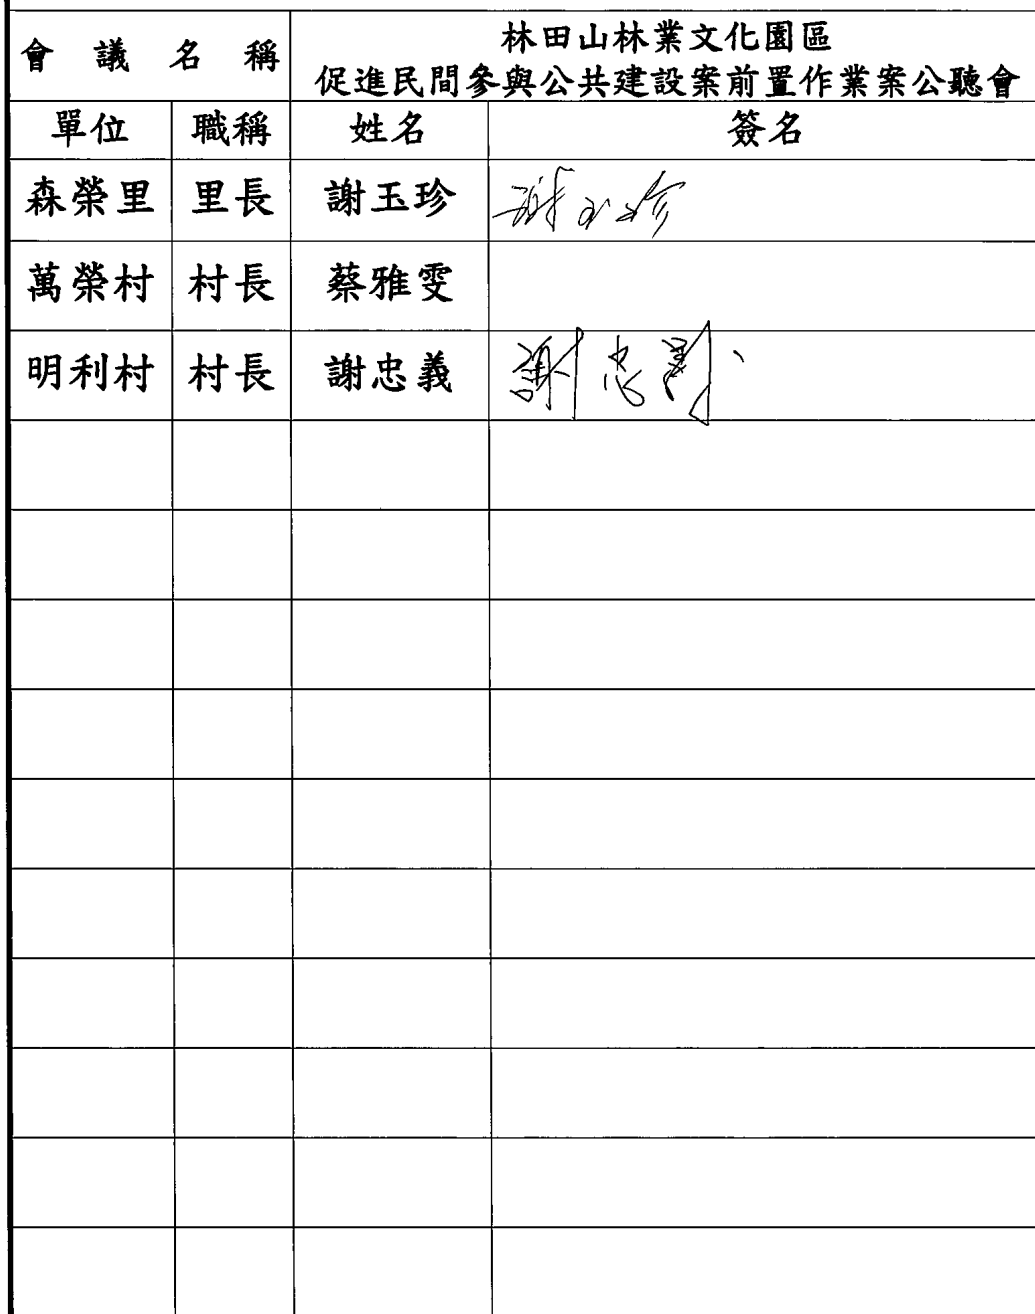 會議名稱
林田山林業文化園區
促進民間參與公共建設案前置作業案公聽會
單位 職稱 姓名 簽名
森榮里 里長 謝玉珍 謝玉珍
萬榮村 村長 蔡雅雯
明利村 村長 謝忠義 謝忠義